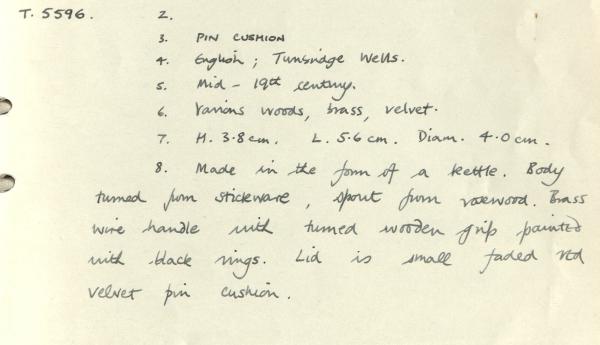 T. 5596. 2.
3. PIN CUSHION
4. English ; Tunbridge Wells.
5. Mid - 19th century.
6. Various woods, brass, velvet.
7. H. 3.8cm. L. 5.6cm. Diam. 4.0cm.
8. Made in the form of a kettle. Body
turned from stickware, spout from rosewood. Brass
wire handle with turned wooden grip painted
with black rings. Lid is small faded red
velvet pin cushion.